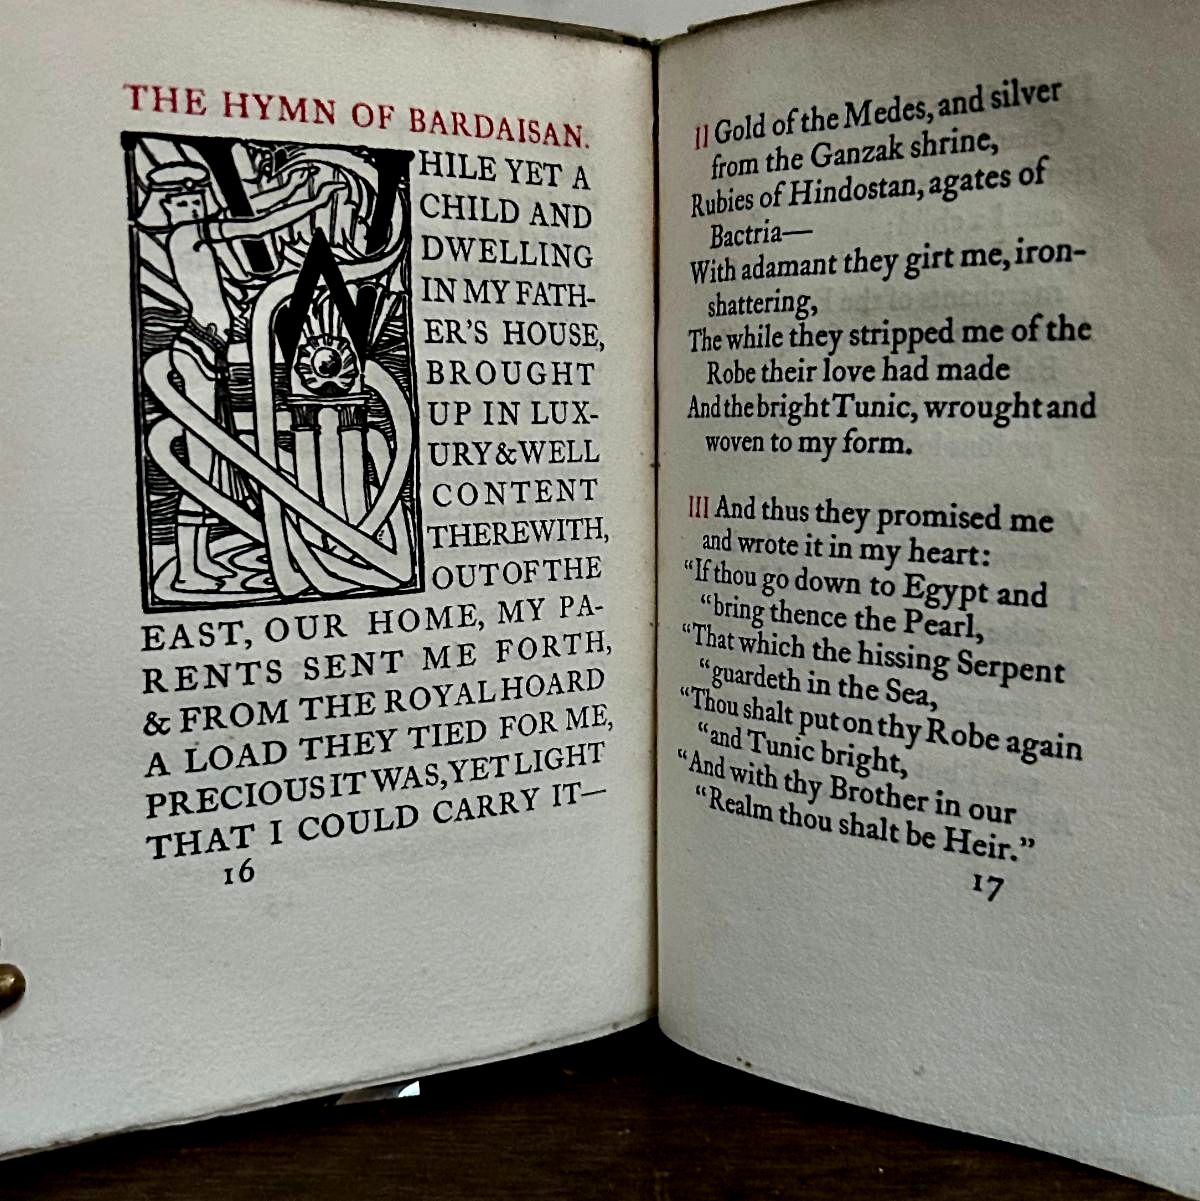 THE HYMN OF BARDAISAN.
WHILE YET A
CHILD AND
DWELLING
IN MY FATH-
ER'S HOUSE,
BROUGHT
UP IN LUX-
URY & WELL
CONTENT
THEREWITH,
OUT OF THE
EAST, OUR HOME, MY PA-
RENTS SENT ME FORTH,
& FROM THE ROYAL HOARD
A LOAD THEY TIED FOR ME,
PRECIOUS IT WAS, YET LIGHT
THAT I COULD CARRY IT—
16
II Gold of the Medes, and silver
from the Ganzak shrine,
Rubies of Hindostan, agates of
Bactria—
With adamant they girt me, iron-
shattering,
The while they stripped me of the
Robe their love had made
And the bright Tunic, wrought and
woven to my form.
III And thus they promised me
and wrote it in my heart:
“If thou go down to Egypt and
“bring thence the Pearl,
“That which the hissing Serpent
“guardeth in the Sea,
“Thou shalt put on thy Robe again
“and Tunic bright,
“And with thy Brother in our
“Realm thou shalt be Heir.”
17